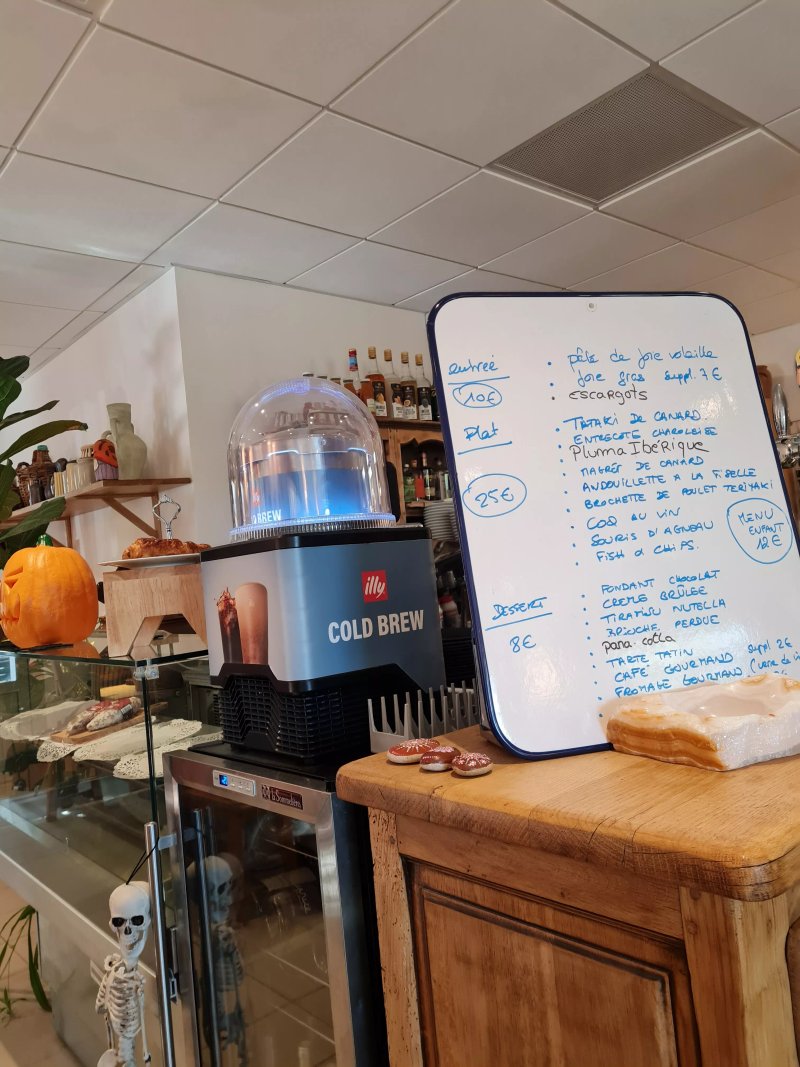 entrée
10€
• pâté de foie volaille
• foie gras suppl. 7€
• escargots
Plat
25€
• TATAKI DE CANARD
• ENTRECOTE CHAROLAISE
Pluma Ibérique
• MAGRET DE CANARD
• ANDOUILLETTE A LA FISELLE
• BROCHETTE DE POULET TERIYAKI
• COQ AU VIN
• SOURIS D'AGNEAU
• FISH & CHIPS.
MENU
ENFANT
12€
DESSERT
8€
• FONDANT CHOCOLAT
• CREME BRÛLÉE
• TIRAMISU NUTELLA
• BRIOCHE PERDUE
pana cotta
• TARTE TATIN
• CAFÉ GOURMAND suppl 2€
• FROMAGE GOURMAND
illy
COLD BREW
BREW
la Sommelière